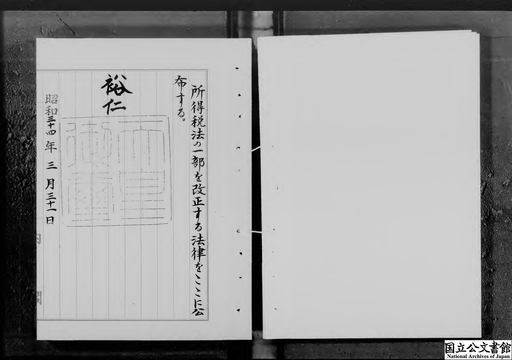 所得税法の一部を改正する法律をここに公
布する。
裕仁
昭和三十四年三月三十一日
内閣
国立公文書館
National Archives of Japan